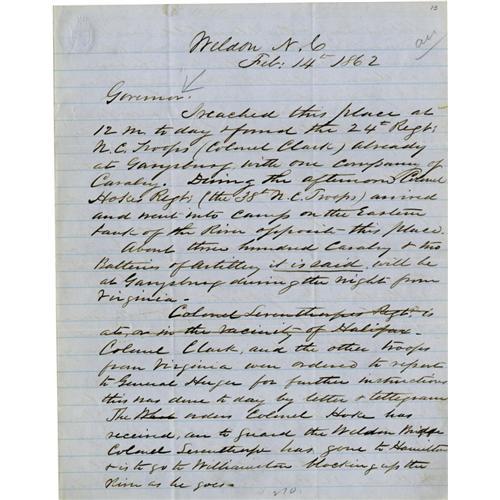 13
Weldon N.C
Feb: 14th 1862
Governor.
I reached this place at
12 m. to day & found the 24th Regt:
N.C. Troops (Colonel Clark) already
at Garysburg, with one company of
Cavalry. During the afternoon Colonel
Hokes Regt: (the 38th N.C. Troops) arrived
and went into camp on the Eastern
bank of the River opposite this place.
About three hundred Cavalry & two
Batteries of Artillery it is said, will be
at Garysburg during the night from
Virginia.
Colonel Leventhorpes Regt: is
at, or in the vacinity of Halifax.
Colonel Clark, and the other troops
from Virginia were ordered to report
to General Huger for further instructions
this was done to day by letter & telegram
The orders Colonel Hoke has
received, are to guard the Weldon Bridge
Colonel Leventhorpe has gone to Hamilton
& is to go to Williamston blocking up the
River as he goes.